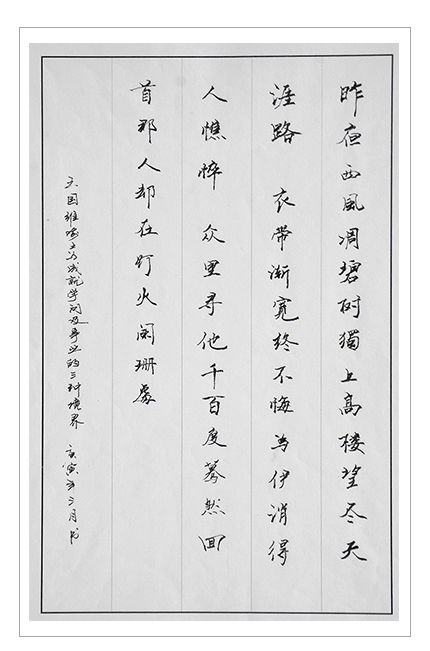 昨夜西風凋碧树獨上高楼望尽天
涯路 衣带渐宽终不悔为伊消得
人憔悴 众里寻他千百度蓦然回
首那人却在灯火阑珊處
王国维喻之为成就学问及事业的三种境界 庚寅年三月书